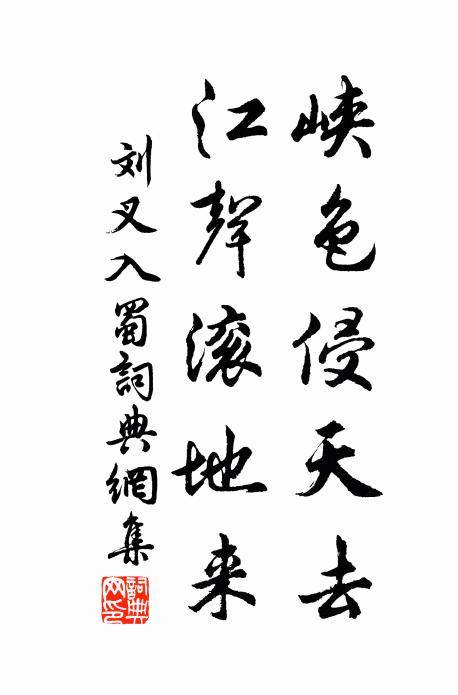 峡色侵天去
江聲滚地来
刘叉入蜀詞典網集
詞典网印